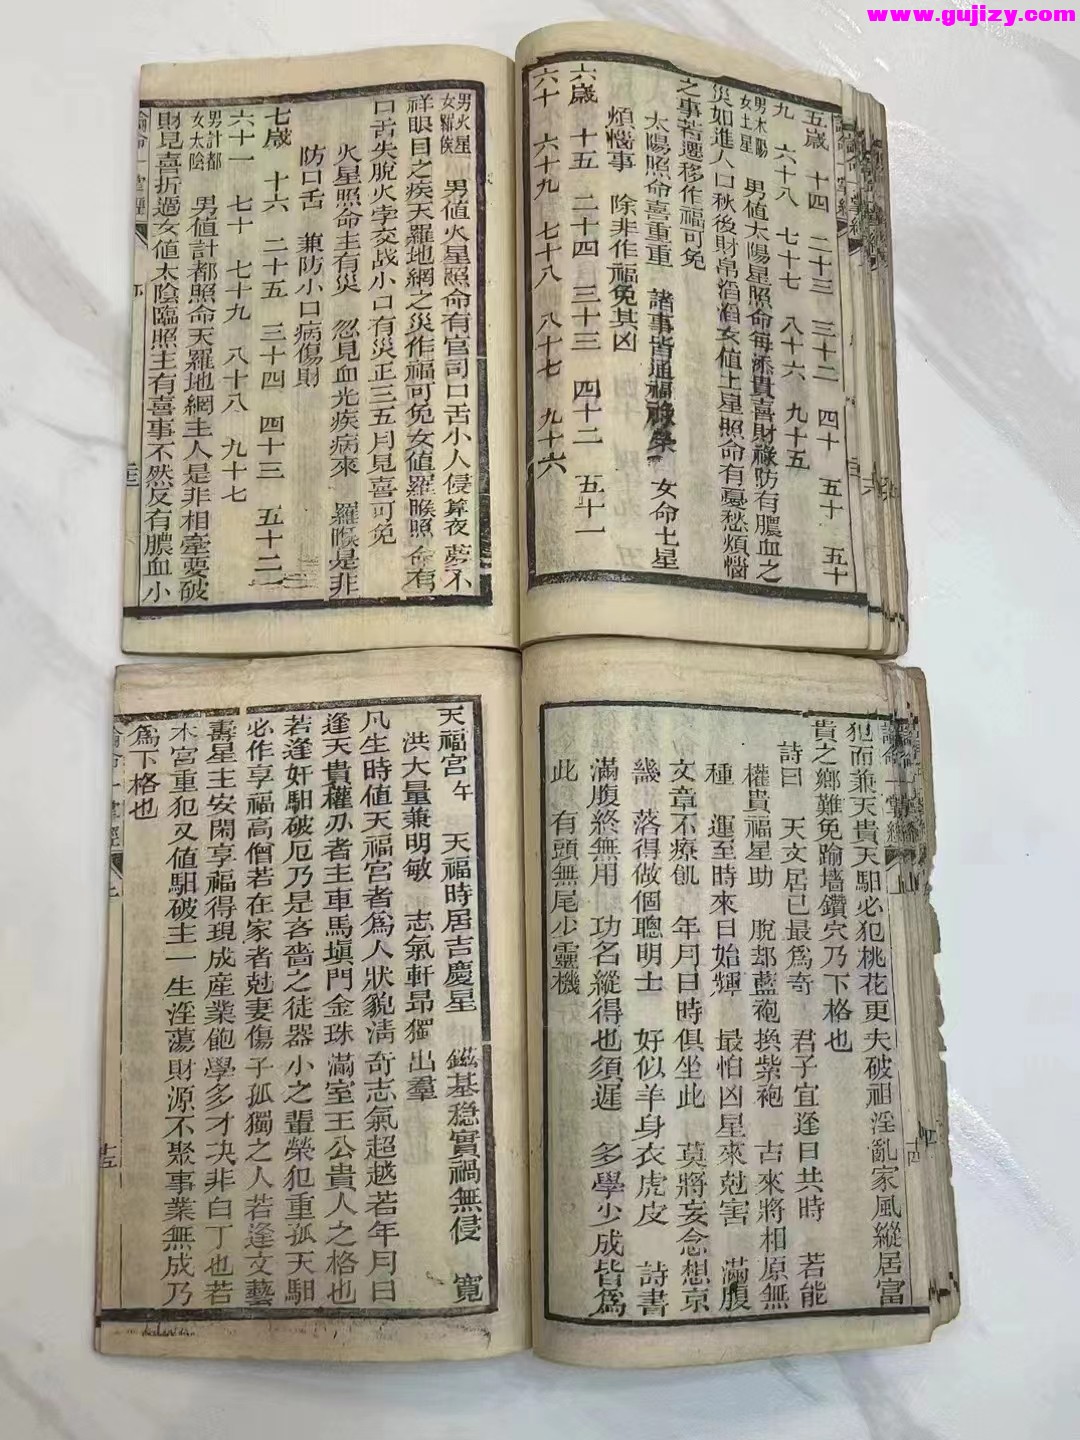 www.gujizy.com
五歲 十四 二十三 三十二 四十 五十 五十
九 六十八 七十七 八十六 九十五
男太陽 女土星 男值太陽星照命每添貴喜財祿防有膿血之
災如進人口秋後財帛滔滔女值土星照命有憂愁煩惱
之事若遷移作福可免
太陽照命喜重重 諸事皆通福祿榮 女命土星
煩惱事 除非作福免其凶
六歲 十五 二十四 三十三 四十二 五十一
六十 六十九 七十八 八十七 九十六
男火星 女羅睺 男值火星照命有官司口舌小人侵算夜夢不
祥眼目之疾天羅地網之災作福可免女值羅睺照命有
口舌失脫火孛交战小口有災正三五月見喜可免
火星照命主有災 忽見血光疾病來 羅睺是非
防口舌 兼防小口病傷財
七歲 十六 二十五 三十四 四十三 五十二
六十一 七十 七十九 八十八 九十七
男計都 女太陰 男值計都照命天羅地網主人是非相牽要破
財見喜折過女值太陰臨照主有喜事不然反有膿血小
論命一掌經
犯而兼天貴天馹必犯桃花更夫破祖淫亂家風縱居富
貴之鄉難免踰墻鑽穴乃下格也
詩曰 天文居巳最爲奇 君子宜逢日共時 若能
權貴福星助 脫却藍袍換紫袍 古來將相原無
種 運至時來日始輝 最怕凶星來尅害 滿腹
文章不療飢 年月日時俱坐此 莫將妄念想京
畿 落得做個聰明士 好似羊身衣虎皮 詩書
滿腹終無用 功名縱得也須遲 多學少成皆爲
此 有頭無尾少靈機
天福宮午 天福時居吉慶星 鎡基穏實禍無侵 寬
洪大量兼明敏 志氣軒昂獨出羣
凡生時值天福宮者爲人狀貌清奇志氣超越若年月日
逢天貴權刃者主車馬塡門金珠滿室王公貴人之格也
若逢奸馹破厄乃是吝嗇之徒器小之輩榮犯重孤天馹
必作享福高僧若在家者尅妻傷子孤獨之人若逢文藝
壽星主安閑享福得現成産業飽學多才决非白丁也若
本宮重犯又值馹破主一生淫蕩財源不聚事業無成乃
爲下格也
論命一掌經 上 十五